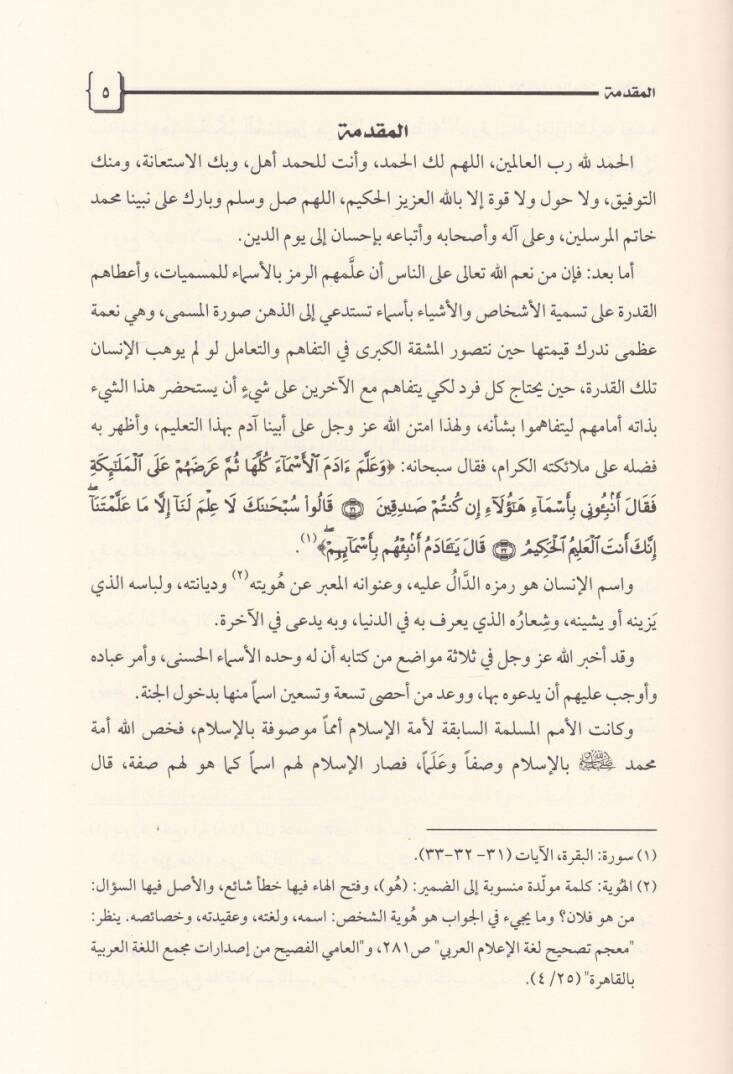 المقدمة ٥
المقدمة
الحمد لله رب العالمين، اللهم لك الحمد، وأنت للحمد أهل، وبك الاستعانة، ومنك
التوفيق، ولا حول ولا قوة إلا بالله العزيز الحكيم، اللهم صل وسلم وبارك على نبينا محمد
خاتم المرسلين، وعلى آله وأصحابه وأتباعه بإحسان إلى يوم الدين.
أما بعد: فإن من نعم الله تعالى على الناس أن علَّمهم الرمز بالأسماء للمسميات، وأعطاهم
القدرة على تسمية الأشخاص والأشياء بأسماء تستدعي إلى الذهن صورة المسمى، وهي نعمة
عظمى ندرك قيمتها حين نتصور المشقة الكبرى في التفاهم والتعامل لو لم يوهب الإنسان
تلك القدرة، حين يحتاج كل فرد لكي يتفاهم مع الآخرين على شيءٍ أن يستحضر هذا الشيء
بذاته أمامهم ليتفاهموا بشأنه، ولهذا امتن الله عز وجل على أبينا آدم بهذا التعليم، وأظهر به
فضله على ملائكته الكرام، فقال سبحانه: ﴿وَعَلَّمَ ءَادَمَ ٱلْأَسْمَآءَ كُلَّهَا ثُمَّ عَرَضَهُمْ عَلَى ٱلْمَلَٰٓئِكَةِ
فَقَالَ أَنۢبِـُٔونِى بِأَسْمَآءِ هَٰٓؤُلَآءِ إِن كُنتُمْ صَٰدِقِينَ ۝٣١ قَالُوا۟ سُبْحَٰنَكَ لَا عِلْمَ لَنَآ إِلَّا مَا عَلَّمْتَنَآ ۖ
إِنَّكَ أَنتَ ٱلْعَلِيمُ ٱلْحَكِيمُ ۝٣٢ قَالَ يَٰٓـَٔادَمُ أَنۢبِئْهُم بِأَسْمَآئِهِمْ ۖ﴾(١).
واسم الإنسان هو رمزه الدَّالُ عليه، وعنوانه المعبر عن هُويته(٢) وديانته، ولباسه الذي
يَزينه أو يشينه، وشِعارُه الذي يعرف به في الدنيا، وبه يدعى في الآخرة.
وقد أخبر الله عز وجل في ثلاثة مواضع من كتابه أن له وحده الأسماء الحسنى، وأمر عباده
وأوجب عليهم أن يدعوه بها، ووعد من أحصى تسعة وتسعين اسماً منها بدخول الجنة.
وكانت الأمم المسلمة السابقة لأمة الإسلام أمماً موصوفة بالإسلام، فخص الله أمة
محمد ﷺ بالإسلام وصفاً وعَلَماً، فصار الإسلام لهم اسماً كما هو لهم صفة، قال
(١) سورة: البقرة، الآيات (٣١- ٣٢-٣٣).
(٢) الهُوية: كلمة مولّدة منسوبة إلى الضمير: (هُو)، وفتح الهاء فيها خطأ شائع، والأصل فيها السؤال:
من هو فلان؟ وما يجيء في الجواب هو هُوية الشخص: اسمه، ولغته، وعقيدته، وخصائصه. ينظر:
"معجم تصحيح لغة الإعلام العربي" ص٢٨١، و"العامي الفصيح من إصدارات مجمع اللغة العربية
بالقاهرة" (٢٥/ ٤).